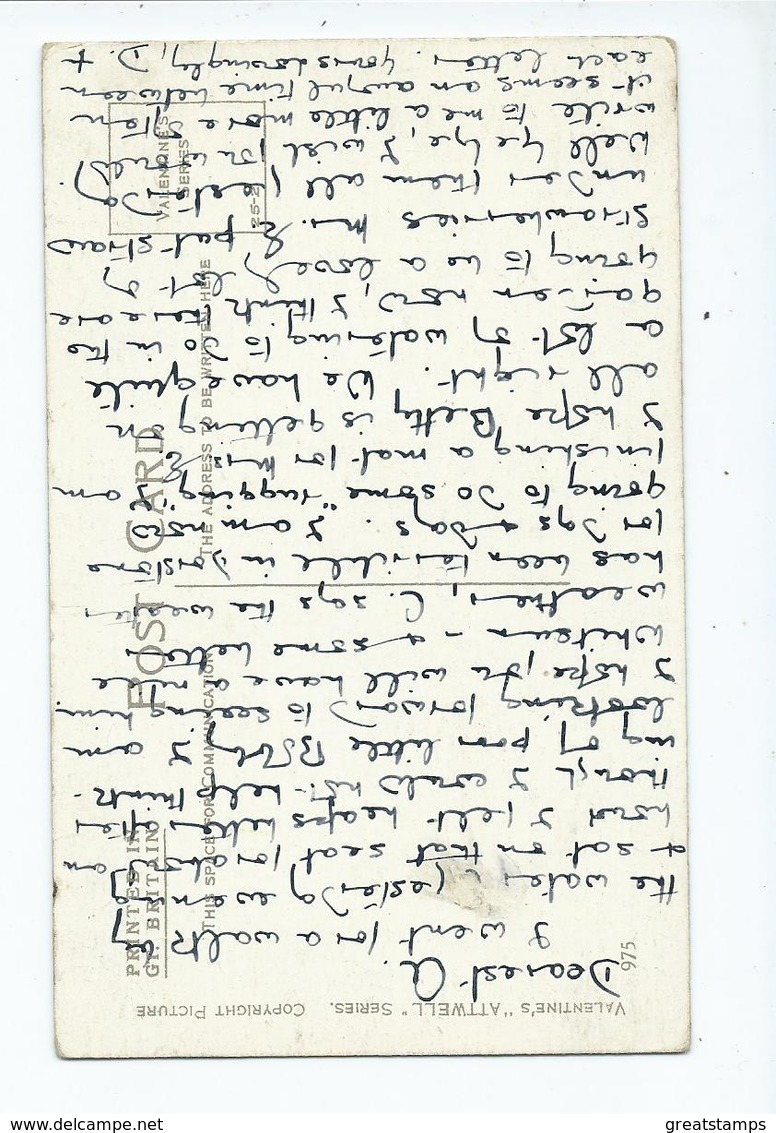 VALENTINE'S "ATTWELL" SERIES. COPYRIGHT PICTURE
975
PRINTED IN
GT. BRITAIN
POST CARD
THIS SPACE FOR COMMUNICATION
THE ADDRESS TO BE WRITTEN HERE
VALENTINE'S
SERIES
25-2
Dearest A.
I went for a walk by
the water yesterday evening
& sat on that seat for about an
hour & I felt heaps better after
though I could not help think-
ing of poor little Bobby, I am
looking forward to seeing him
I hope you will have a nice
Whitsun - & some better
weather, C. says the weather
has been terrible in
for days & days. I am now
going to do some "rugging", I am
finishing a mat for Mrs E
I hope Betty is getting on
all right. We have quite
a lot of watering to do in the
garden now, I think there are
going to be a lovely lot of
strawberries Mr. E put straw
under them all yesterday.
Well bye bye, will you
write to me a little more often
it seems an awful time between
each letter. Yours lovingly, D. +
www.delcampe.net
greatstamps